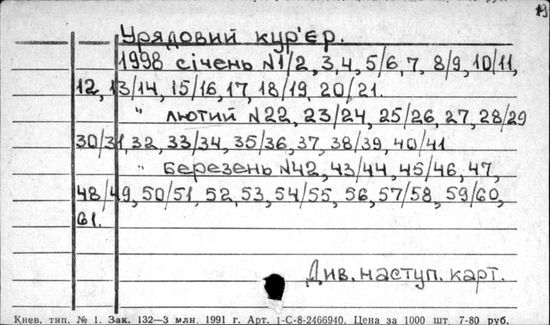 19
Урядовий кур'єр.
1998 січень №1/2, 3,4, 5/6,7, 8/9, 10/11,
12, 13/14, 15/16,17, 18/19, 20/21.
" лютий №22, 23/24, 25/26, 27, 28/29
30/31,32, 33/34, 35/36, 37, 38/39, 40/41
" Березень №42, 43/44, 45/46, 47,
48/49, 50/51, 52, 53, 54/55, 56, 57/58, 59/60,
61.
Див. наступ. карт.
Киев. тип. № 1. Зак. 132—3 млн. 1991 г. Арт. 1-С-8-2466940. Цена за 1000 шт 7-80 руб.